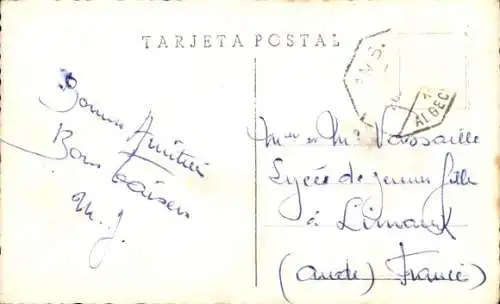 TARJETA POSTAL
Bonnes Amitiés
Bons baisers
M. J.
Mme et Mr Vassaille
Lycée de jeunes filles
à Limoux
(Aude) France)
ALGEC